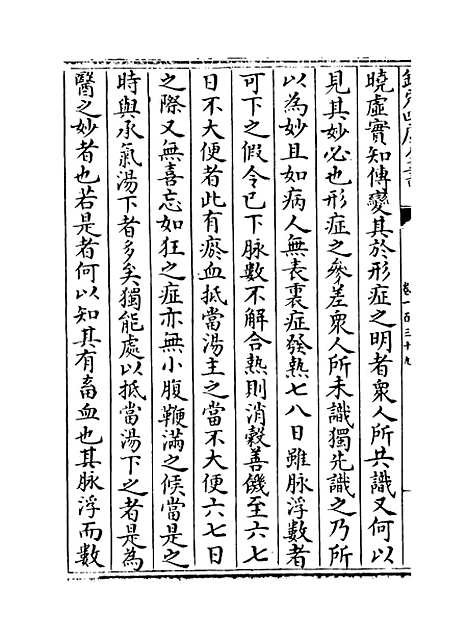 欽定四庫全書
卷一百三十九
曉虛實知傳變其於形症之明者衆人所共識又何以
見其妙必也形症之參差衆人所未識獨先識之乃所
以為妙且如病人無表裏症發熱七八日雖脉浮數者
可下之假令已下脉數不解合熱則消穀善饑至六七
日不大便者此有瘀血抵當湯主之當不大便六七日
之際又無喜忘如狂之症亦無小腹鞕滿之候當是之
時與承氣湯下者多矣獨能處以抵當湯下之者是為
醫之妙者也若是者何以知其有畜血也其脉浮而數